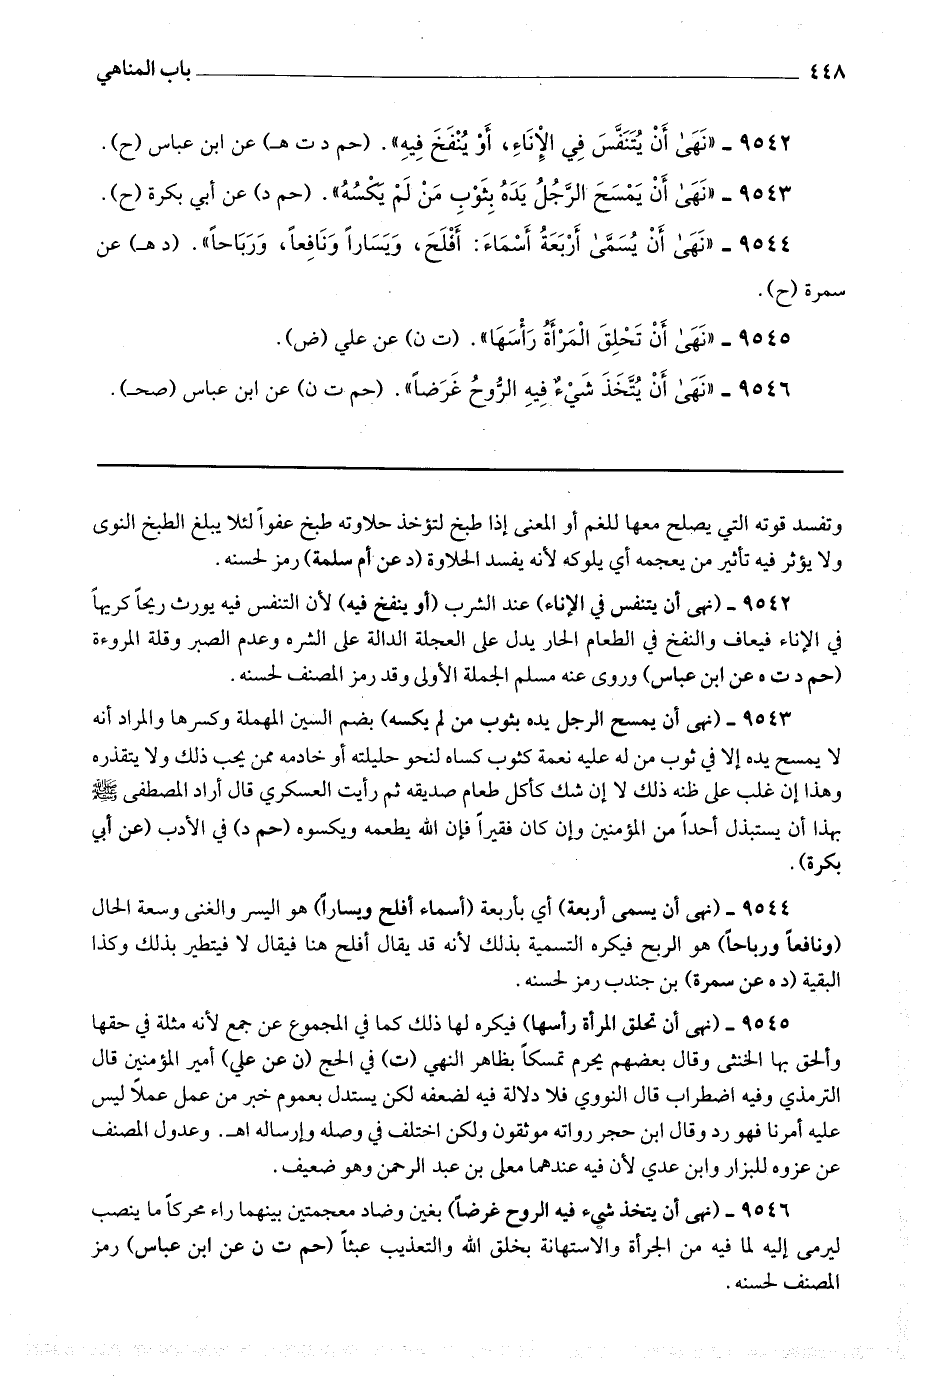 ٤٤٨ باب المناهي
٩٥٤٢ ـ «نَهَىٰ أَنْ يُتَنَفَّسَ فِي الْإِنَاءِ، أَوْ يُنْفَخَ فِيهِ». (حم د ت هـ) عن ابن عباس (ح).
٩٥٤٣ ـ «نَهَىٰ أَنْ يَمْسَحَ الرَّجُلُ يَدَهُ بِثَوْبِ مَنْ لَمْ يَكْسُهُ». (حم د) عن أبي بكرة (ح).
٩٥٤٤ ـ «نَهَىٰ أَنْ يُسَمَّىٰ أَرْبَعَةُ أَسْمَاءَ: أَفْلَحَ، وَيَسَاراً وَنَافِعاً، وَرَبَاحاً». (د هـ) عن
سمرة (ح).
٩٥٤٥ ـ «نَهَىٰ أَنْ تَحْلِقَ الْمَرْأَةُ رَأْسَهَا». (ت ن) عن علي (ض).
٩٥٤٦ ـ «نَهَىٰ أَنْ يُتَّخَذَ شَيْءٌ فِيهِ الرُّوحُ غَرَضاً». (حم ت ن) عن ابن عباس (صحـ).
وتفسد قوته التي يصلح معها للغم أو المعنى إذا طبخ لتؤخذ حلاوته طبخ عفواً لئلا يبلغ الطبخ النوى
ولا يؤثر فيه تأثير من يعجمه أي يلوكه لأنه يفسد الحلاوة (د عن أم سلمة) رمز لحسنه.
٩٥٤٢ ـ (نهى أن يتنفس في الإناء) عند الشرب (أو ينفخ فيه) لأن التنفس فيه يورث ريحاً كريهاً
في الإناء فيعاف والنفخ في الطعام الحار يدل على العجلة الدالة على الشره وعدم الصبر وقلة المروءة
(حم د ت ه عن ابن عباس) وروى عنه مسلم الجملة الأولى وقد رمز المصنف لحسنه.
٩٥٤٣ ـ (نهى أن يمسح الرجل يده بثوب من لم يكسه) بضم السين المهملة وكسرها والمراد أنه
لا يمسح يده إلا في ثوب من له عليه نعمة كثوب كساه لنحو حليلته أو خادمه ممن يحب ذلك ولا يتقذره
وهذا إن غلب على ظنه ذلك لا إن شك كأكل طعام صديقه ثم رأيت العسكري قال أراد المصطفى ﷺ
بهذا أن يستبذل أحداً من المؤمنين وإن كان فقيراً فإن الله يطعمه ويكسوه (حم د) في الأدب (عن أبي
بكرة).
٩٥٤٤ ـ (نهى أن يسمى أربعة) أي بأربعة (أسماء أفلح ويساراً) هو اليسر والغنى وسعة الحال
(ونافعاً ورباحاً) هو الربح فيكره التسمية بذلك لأنه قد يقال أفلح هنا فيقال لا فيتطير بذلك وكذا
البقية (د ه عن سمرة) بن جندب رمز لحسنه.
٩٥٤٥ ـ (نهى أن تحلق المرأة رأسها) فيكره لها ذلك كما في المجموع عن جمع لأنه مثلة في حقها
وألحق بها الخنثى وقال بعضهم يحرم تمسكاً بظاهر النهي (ت) في الحج (ن عن علي) أمير المؤمنين قال
الترمذي وفيه اضطراب قال النووي فلا دلالة فيه لضعفه لكن يستدل بعموم خبر من عمل عملاً ليس
عليه أمرنا فهو رد وقال ابن حجر رواته موثقون ولكن اختلف في وصله وإرساله اهـ. وعدول المصنف
عن عزوه للبزار وابن عدي لأن فيه عندهما معلى بن عبد الرحمن وهو ضعيف.
٩٥٤٦ ـ (نهى أن يتخذ شيء فيه الروح غرضاً) بغين وضاد معجمتين بينهما راء محركاً ما ينصب
ليرمى إليه لما فيه من الجرأة والاستهانة بخلق الله والتعذيب عبثاً (حم ت ن عن ابن عباس) رمز
المصنف لحسنه.